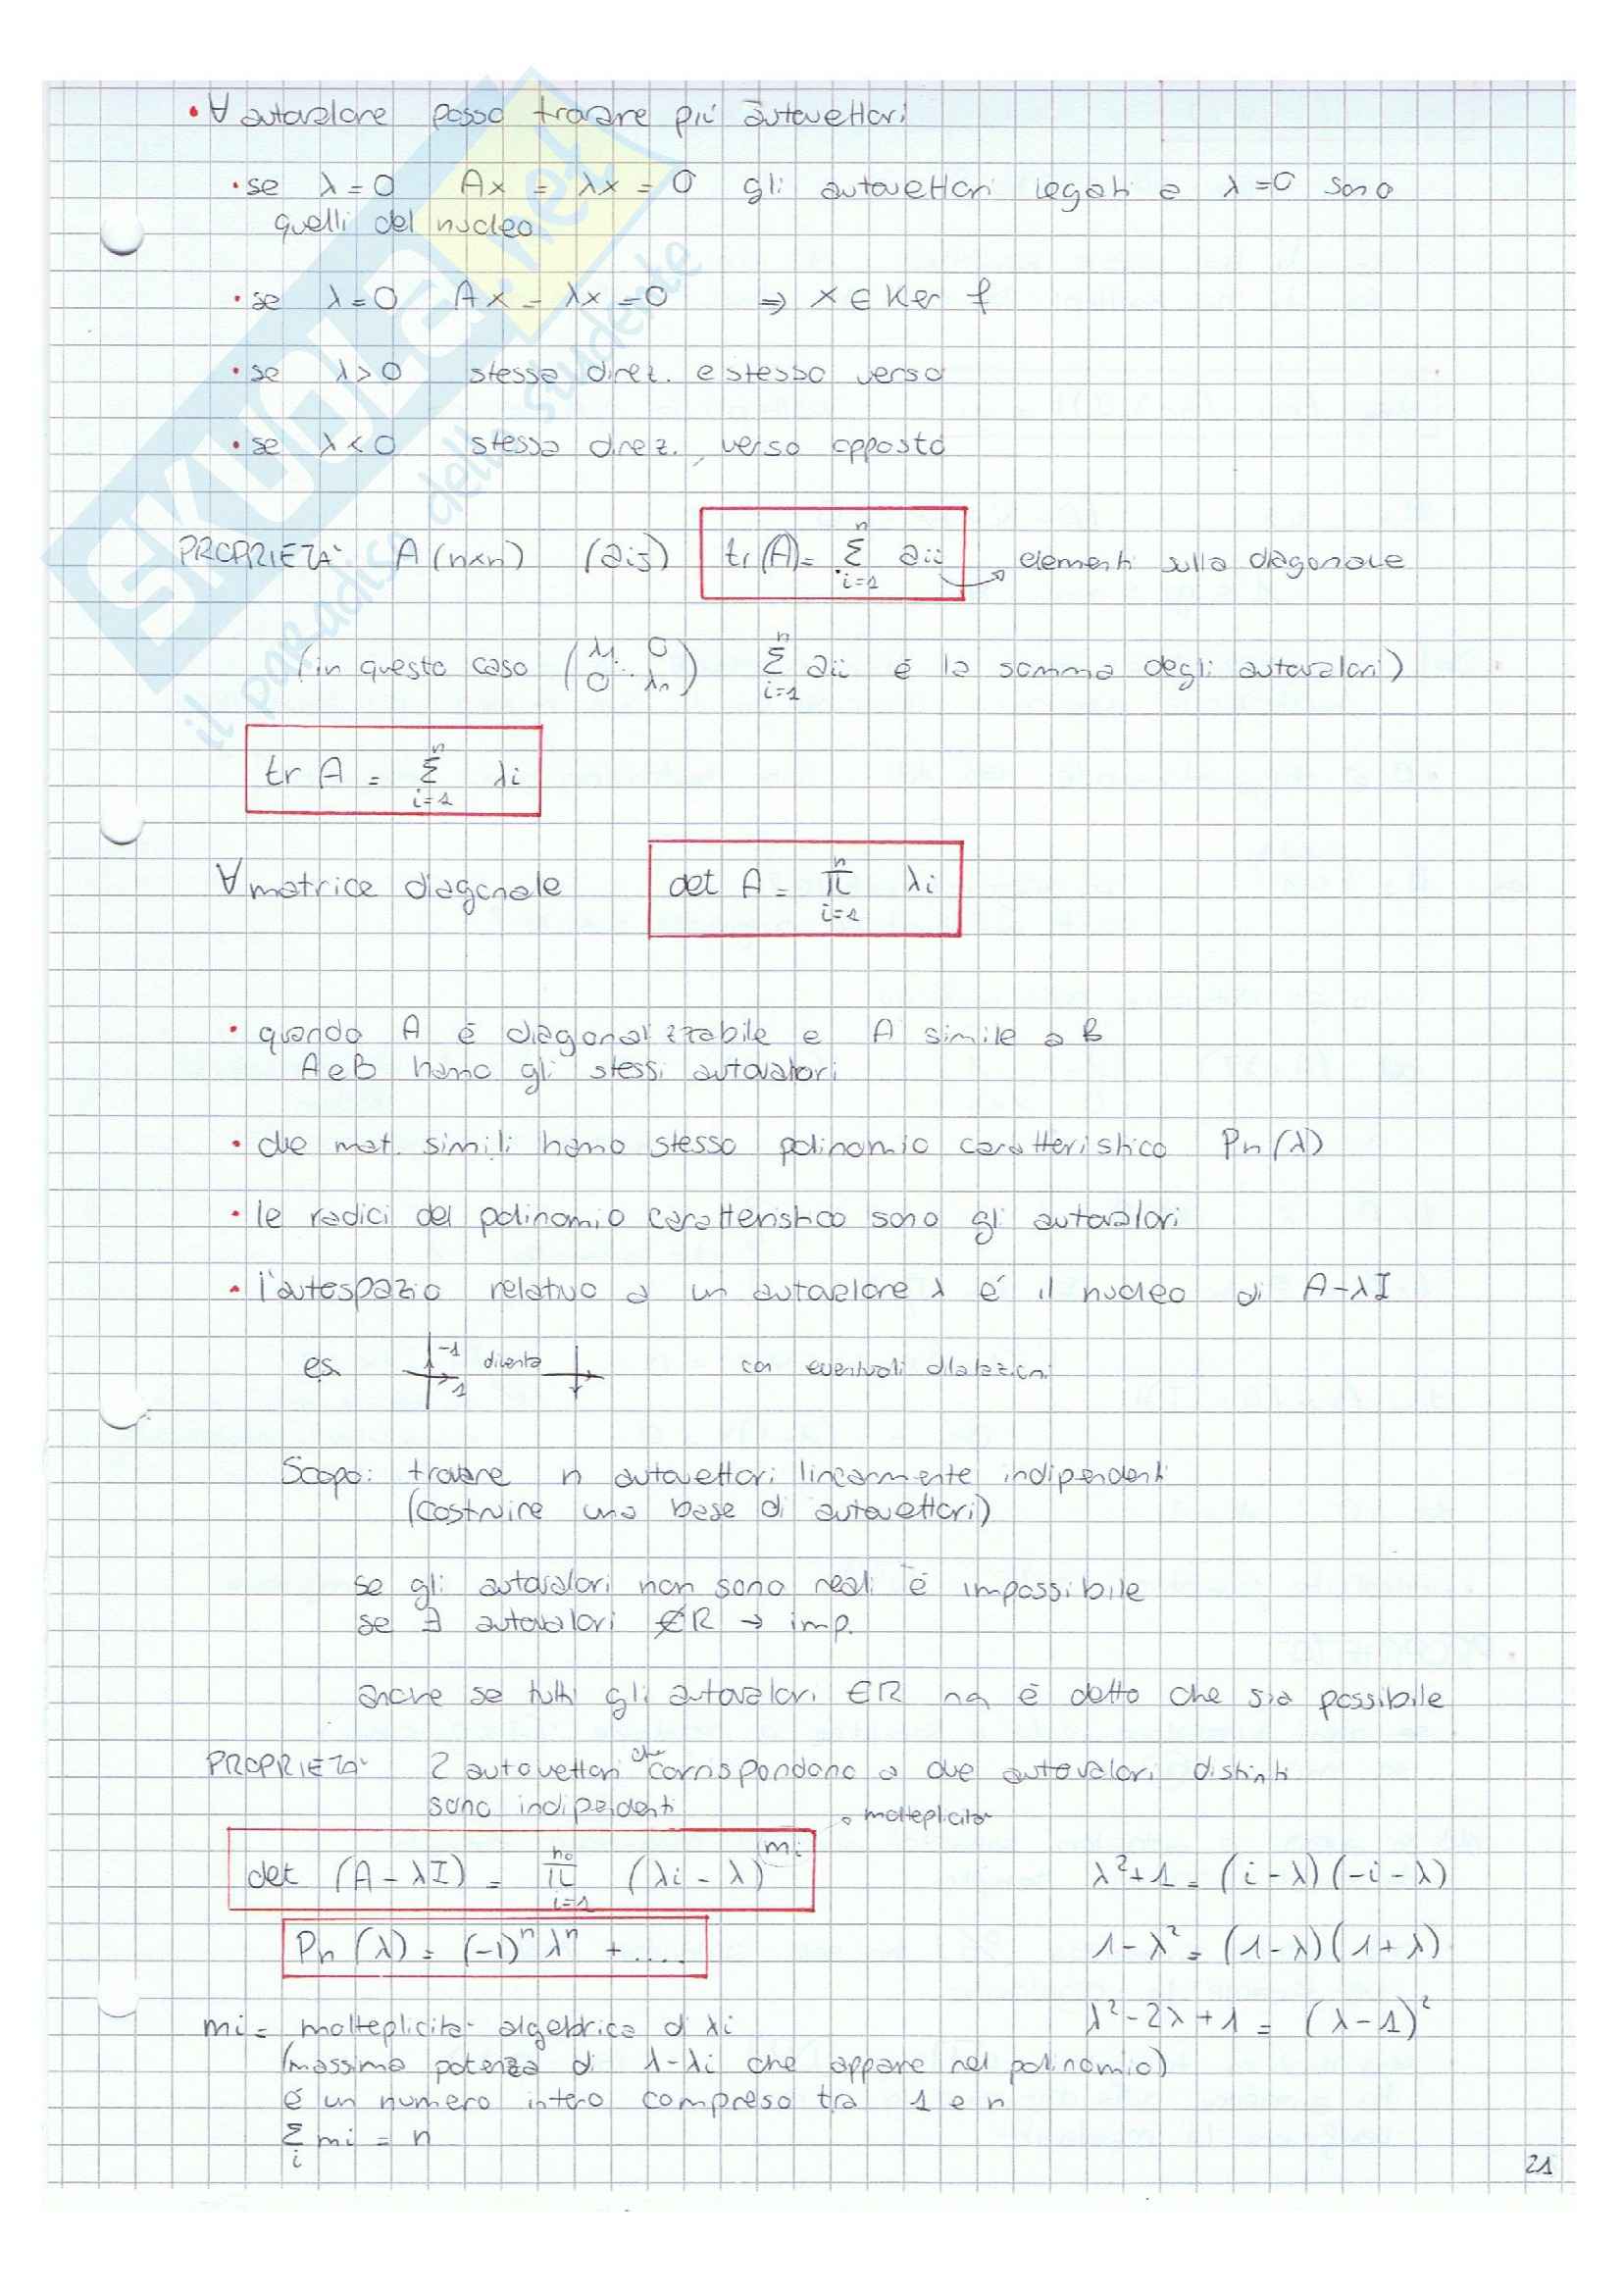 • ∀ autovalore posso trovare più autovettori
• se λ = 0 Ax = λx = 0 gli autovettori legati a λ = 0 sono
quelli del nucleo
• se λ = 0 Ax = λx = 0 ⇒ x ∈ Ker f
• se λ > 0 stessa direz. e stesso verso
• se λ < 0 stessa direz., verso opposto
PROPRIETA' A (n×n) (aij) tr(A) = Σ i=1 n aii → elementi sulla diagonale
(in questo caso (λ1 0 0 λn) Σ i=1 n aii è la somma degli autovalori)
tr A = Σ i=1 n λi
∀ matrice diagonale det A = π i=1 n λi
• quando A è diagonalizzabile e A simile a B
A e B hanno gli stessi autovalori
• due mat. simili hanno stesso polinomio caratteristico Pn(λ)
• le radici del polinomio caratteristico sono gli autovalori
• l'autospazio relativo a un autovalore λ è il nucleo di A-λI
es -1 1 diventa con eventuali dilatazioni
Scopo: trovare n autovettori linearmente indipendenti
(costruire una base di autovettori)
se gli autovalori non sono reali è impossibile
se ∃ autovalori ∉ R → imp.
anche se tutti gli autovalori ∈ R non è detto che sia possibile
PROPRIETA' 2 autovettori che corrispondono a due autovalori distinti
sono indipendenti
molteplicità
det (A-λI) = π i=1 n0 (λi - λ)^mi
λ²+1 = (i-λ)(-i-λ)
Pn(λ) = (-1)^n λ^n + ....
1-λ² = (1-λ)(1+λ)
mi = molteplicità algebrica di λi
λ²-2λ+1 = (λ-1)²
(massima potenza di λ-λi che appare nel polinomio)
è un numero intero compreso tra 1 e n
Σ i mi = n
21
SKUOLA.net
il paradiso dello studente